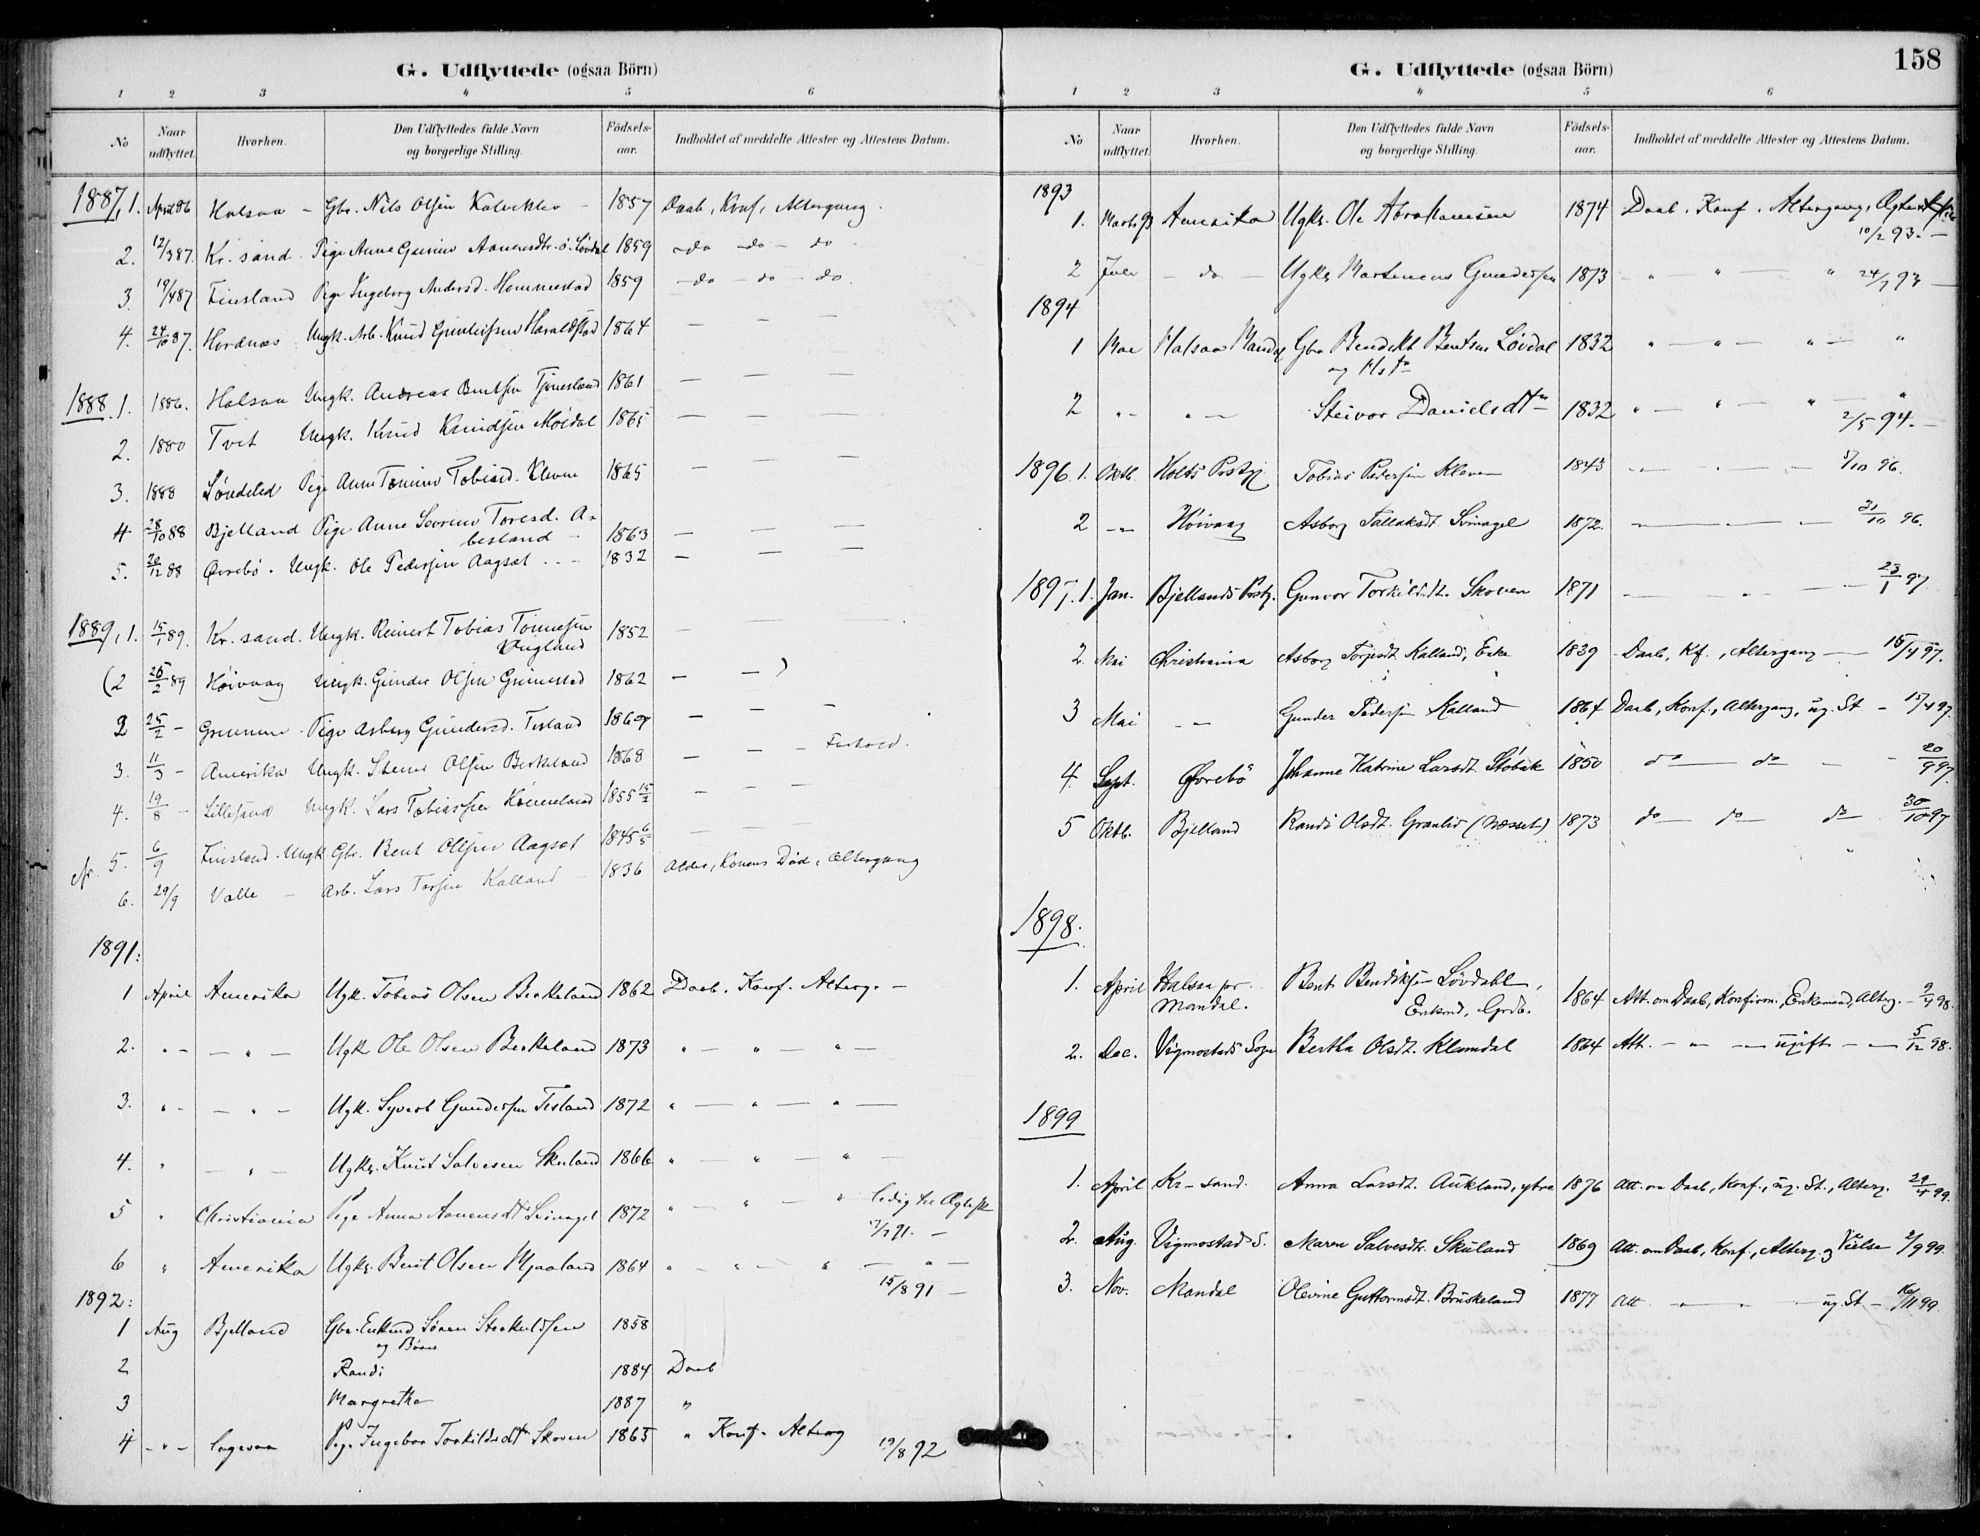 G. Udflyttede (ogsaa Börn)
1 2 3 4 5 6
No Naar udflyttet. Hvorhen. Den Udflyttedes fulde Navn og borgerlige Stilling. Födsels-aar. Indholdet af meddelte Attester og Attestens Datum.
1887, 1. April 86 Halsaa – Gbr. Nils Olsen – 1857 Daab, Konf, Altergang.
2. 12/3 87. Kr. sand. Pige Anne Gurine Aanensdtr. ö. Lövdal 1859 – do – do – do
3. 19/4 87 Finsland Pige Ingeborg Andersd. Hommestad 1859 – do – do – do.
4. 24/10 87. Ungk. Arb. Knud Haraldstad 1864 — — —
1888. 1. 1886. Halsaa Ungk. Andreas Bentsen 1861 — — —
2. 1880 Tvet Ungk. Knud Knudsen 1865 — — —
3. 1888 Söndeled Pige Anne Tobiasd. Kleven 1865 — — —
4 28/10 88 Bjelland Pige Anne Toresd. A-
besland – 1863 — — —
5. 20/12 88 Övrebö. Ungk. Ole Pedersen Aagset 1832 — — —
1889, 1. 15/1 89. Kr. sand. Ungk. Reinert Tobias Tönnesen
Vegland 1852 — — —
(2 25/2 89 Höivaag Ungk. Gunder Olsen Grimestad 1862 — — )
2 25/2 – Pige Asberg Gundersd. Tisland 1864 — — —
3. 11/3 – Amerika Ungk. Olsen Birkeland 1868 — — – Forhold.
4. 19/8 – Lillesand Ungk. Lars Tobiassen 1855 15/2 — — —
5. 6/9 Finsland. Ungk. Gbr. Bent Olsen Aagset 1845 6/5 — — —
6. 29/9 Valle – Arb. Lars Kalland – 1836 Alder, Konens Död, Altergang
1891:
1 April Amerika Ugk. Tobias Olsen Birkeland 1862 Daab. Konf. Alterg. –
2. " – — " — Ugk Ole Olsen Birkeland 1873 " — " — " —
3. " – — " — Ugk. Syvert Gundersen Tisland 1872 " — " — " —
4. " — " — Ugk. Knut Salvesen Skuland 1866 " — " — " —
5 " Christiania Pige Anna Aanensdtr Svinagel 1872 " — " — " ledig til Ægtesk
91. –
6 " Amerika Ugk. Berit Olsen Mjaaland 1864 " — " — " — " —
15/8 91 —
1892:
1 Aug Bjelland Gbr. Enkmd Sören 1858
og Börn
2 Randi 1884 Daab
3 Margrethe 1887 "
4 – " – Pige Ingebor Torkildsdtr Skoven 1865 " Konf. Alterg
19/8 92
158
G. Udflyttede (ogsaa Börn)
1 2 3 4 5 6
No Naar udflyttet. Hvorhen. Den Udflyttedes fulde Navn og borgerlige Stilling. Födsels-aar. Indholdet af meddelte Attester og Attestens Datum.
1893
1. Marts Amerika Ugk. Ole Abrahamsen 1874 Daab. Konf. Altergang.
10/2 93. –
2 – do – Ugk. Martinius Gundersen 1873 – " — " — " 24/7 93 —
1894
1 Mai Halsaa Mandal Gbr Bendikt Bentsen Lövdal 1832 " — " — " — "
og
2 " – " – Steivor Danielsdtr 1832 " — " — " — "
2/5 94. –
1896. 1. Oktb. Holts Tobias Pedersen Kleven 1843 — — — /10 96.
2 – " – Höivaag Asborg Tallaksdt. Svinagel 1872. — — — 31/10 96.
1897. 1. Jan. Bjellands Gunvor Torkildsdt. Skoven 1871 — — — 23/1 97
2. Mai Christiania Asborg Kalland, Enke 1839 – Daab, Kf., Altergang — 15/4 97.
3 Mai – " – Gunder Pedersen Kalland 1864 Daab, Konf., Altergang, ug. St – 15/4 97.
4. Sept. Övrebö Johanne Katrine Larsdt. Stöbak 1850 do — do — – 20/9 97.
5 Oktb. Bjelland Randi Olsdt. Granlid (Næsset) 1873 do — do — do – 30/10 97
1898.
1. April Halsaa pr. Mandal. Bent Bendiksen Lövdahl,
Enkmd, Grdb. 1864 Att. om Daab, Konfirm., Enkemand, Alterg. – 9/4 98.
2. Dec. Vigmostads Sogn Bertha Olsdt. Klamdal 1864 Att. – " — ugift – " 5/12 98.
1899
1. April Kr-sand. Anna Larsdt. Aukland, ytre 1876 Att. om Daab, Konf., ug. St., Alterg. 29/4 99.
2. Aug. Vigmostad S. Maren Salvesdtr. Skuland 1869 Att. om Daab, Konf., Alterg. og Vielse 2/9 99.
3. Nov. Mandal Olevine Guttormsdt. Bruskeland 1877 Att — " — " – ug. St – /11 99.